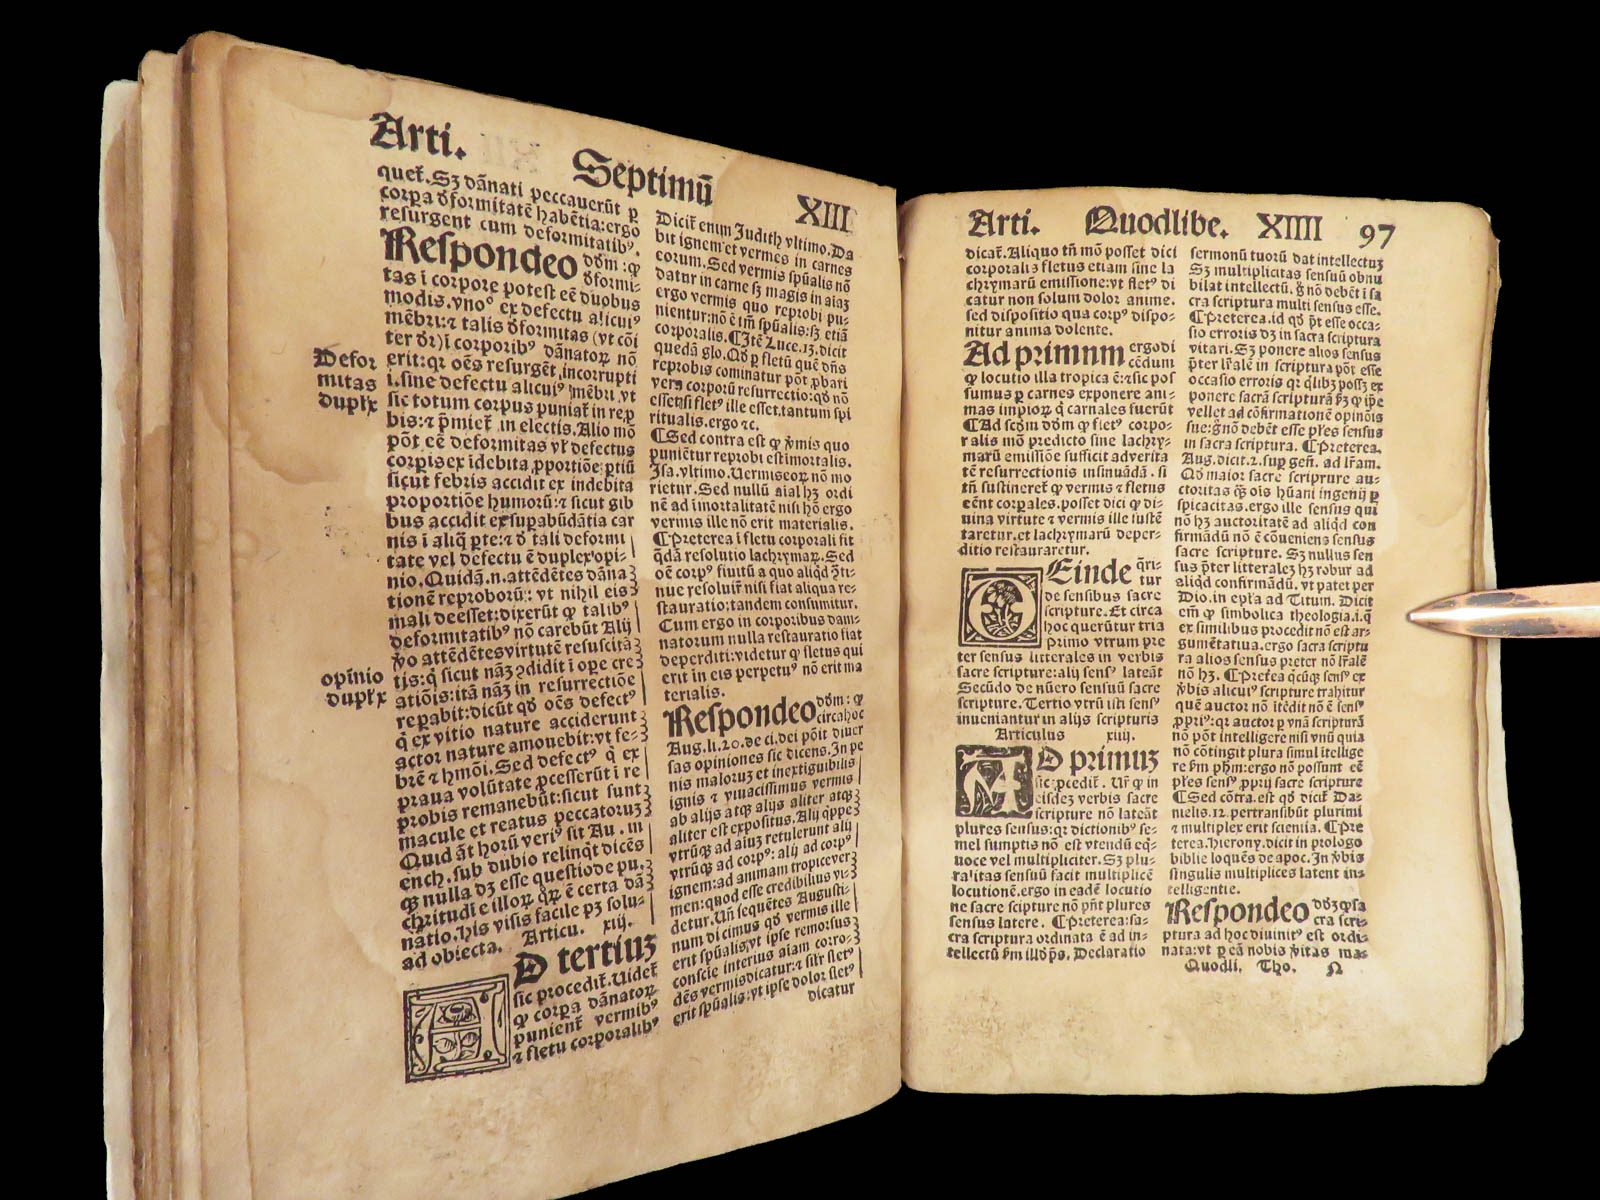 Arti. Septimū XIII
quet̄. Sꝫ dānati peccauerūt ꝑ
corpa ꝺformitatē habētia: ergo
resurgent cum deformitatibꝰ.
Respondeo ꝺꝺm: ꝙ
ꝺformi-
tas ī corpore potest eē duobus
modis. vnoº ex defectu alicuiꝰ
mēbri: ⁊ talis ꝺformitas (vt cōi
ter ꝺr) ī corporibꝰ dānatoꝝ nō
erit: qꝛ oēs resurgēt, incorrupti
i. sine defectu alicuiꝰ mēbri, vt
sic totum corpus puniat̄ in rep̄
bis: ⁊ p̄miet̄ in electis. Alio mō
pōt eē deformitas vł defectus
corpis ex ĩdebita ꝓportiōe ꝑtiū
sicut febris accidit ex indebita
proportiōe humorū: ⁊ sicut gib
bus accidit ex supabūdātia car
nis ī aliq̄ pte: ⁊ ꝺ tali deformi
tate vel defectu ē duplex opi-
nio. Quidā. n. attēdētes dāna
tionē reproborū: vt nihil eis
mali deesset: dixerūt ꝙ talibꝰ
deformitatibꝰ nō carebūt Alij
ꝟo attēdētes virtutē resuscitā
tis: q̇ sicut nāꝫ ꝯdidit ī ope cre
atiōis: itā nāꝫ in resurrectiōe
reparabit: dicūt qꝺ oēs defectꝰ
q̇ ex vitio nature acciderunt
actor nature amouebit: vt fe-
brē ⁊ hmōi. Sed defectꝰ q̇ ex
praua volūtate ꝓcesserūt ī re
probis remanebūt: sicut sunt
macule et reatus peccatoruꝫ
Quid āt horū veriꝰ sit Au. in
ench. sub dubio relinqt dicēs
ꝙ nulla ꝺꝫ esse questio de pu.
chritudīe illoꝝ qꝛ̄ ē certa dā
nātio. his visis facile pꝫ solu-
ad obiecta. Articu. xiij.
D tertiuꝫ
sic procedit̄. Videt̄
ꝙ corpa dānatoꝝ
punient̄ vermibꝰ
⁊ fletu corporalibꝰ
Defor
mitas
dupłx
opīnio
dupłx
Dicit̄ enim Judith vltimo. Da
bit ignem et vermes in carnes
eorum. Sed vermis spūalis nō
datur in carne sꝫ magis in aīaꝫ
ergo vermis quo reprobi pu-
nientur: nō ē im̄ spūalis: sꝫ etiā
corporalis. ¶Itē Luce. 13. dicit
quedā glo. Qꝺ ꝑ fletū quē dn̄s
reprobis cominatur pōt ꝓbari
vera corporū resurrectio: qꝺ nō
esset si fletꝰ ille esset. tantum spi
ritualis. ergo ⁊c.
¶Sed contra est ꝙ ꝟmis quo
puniētur reprobi est imortalis.
Isa. vltimo. Uermis eoꝝ nō mo
rietur. Sed nullū aial hꝫ ordi
nē ad īmortalitatē nisi hō ergo
vermis ille nō erit materialis.
¶Preterea ī fletu corporali fit
q̄dā resolutio lachrymaꝝ. Sed
oē corpꝰ finitū a quo aliqd ꝯti-
nue resoluit̄ nisi fiat aliqua re-
stauratio: tandem consumitur.
Cum ergo in corporibus dam-
natorum nulla restauratio fiat
deperditi: videtur ꝙ fletus qui
erit in eis perpetuꝰ nō erit ma
terialis.
Respondeo ꝺꝺm: ꝙ
circa hoc
Aug. li. 20. de ci. dei pōit diuer
sas opiniones sic dicens. In pe
nis maloruꝫ et inextiguibilis
ignis ⁊ viuacissimus vermis
ab alijs atqꝫ alijs aliter atqꝫ
aliter est expositus. Alij q̇ppe
vtrūqꝫ ad aiuꝫ retulerunt alij
vtrūqꝫ ad corpꝰ: alij ad corpꝰ
ignem: ad animam tropice ver
men: quod esse credibilius vi-
detur. Un̄ sequētes Augusti-
num dicimus qꝺ vermis ille
erit spūalis, vt ipse remorsus
consciē interius aiam corro-
dēs vermis dicatur: ⁊ sil̄r fletꝰ
erit spūalis: vt ipse dolor fletꝰ
dicatur
Arti. Quodlibe. XIIII 97
dicat̄. Aliquo tn̄ mō posset dici
corporalis fletus etiam sine la
chrymarū emissione: vt fletꝰ di
catur non solum dolor anime.
sed dispositio qua corpꝰ dispo-
nitur anima dolente.
Ad primnm ergo di
cēdum
ꝙ locutio illa tropica ē: ⁊ sic pos
sumus ꝑ carnes exponere ani-
mas impioꝝ q̇ carnales fuerūt
¶Ad scḋm ꝺꝺm ꝙ fletꝰ corpo-
ralis mō predicto sine lachry-
marū emissiōe sufficit ad verita
tē resurrectionis insinuādā. si
tn̄ sustineret̄ ꝙ vermis ⁊ fletus
eēnt corporales. posset dici ꝙ di-
uina virtute ⁊ vermis ille sustē
taretur. et lachrymarū deper-
ditio restauraretur.
Einde q̄ri-
tur
de sensibus sacre
scripture. Et circa
hoc querūtur tria
Primo vtrum pre
ter sensus litterales in verbis
sacre scripture: alij sensꝰ lateāt
Secūdo de nūero sensuū sacre
scripture. Tertio vtrū isti sensꝰ
inueniantur in alijs scripturis
Articulus xiiij.
D primuꝫ
sic ꝓcedit̄. Ur̄ ꝙ in
eisdeꝫ verbis sacre
scripture nō lateāt
plures sensus: qꝛ dictionibꝰ se-
mel sumptis nō est vtendū eq̄-
uoce vel multipliciter. Sꝫ plu-
ralitas sensuū facit multiplicē
locutionē. ergo in eadē locutio
ne sacre scipture nō pn̄t plures
sensus latere. ¶Preterea: sa-
cra scriptura ordinata ē ad in-
tellectū ẜm illḋ p̄s. Declaratio
sermonū tuorū dat intellectuꝫ
Sꝫ multiplicitas sensuū obnu
bilat intellectū. g̊ nō debēt ī sa
cra scriptura multi sensus esse.
¶Preterea. id qꝺ p̄t esse occa-
sio erroris ꝺꝫ in sacra scriptura
vitari. Sꝫ ponere alios sensus
p̄ter lr̄alē in scriptura pōt esse
occasio erroris qꝛ q̇libꝫ possꝫ ex
ponere sacrā scripturā ẜꝫ ꝙ ip̄e
vellet ad cōfirmationē opinōis
sue: g̊ nō debēt esse pl̄es sensus
in sacra scriptura. ¶Preterea.
Aug. dicit. 2. sup gen̄. ad lr̄am.
Qꝺ maior sacre scriprure au-
ctoritas q̄ꝫ ois hūani ingenij ꝑ
spicacitas. ergo ille sensus qui
nō hꝫ auctoritatē ad aliqd con
firmādū nō ē cōueniens sensus
sacre scripture. Sꝫ nullus sen
sus p̄ter litteralēꝫ hꝫ robur ad
aliqd confirmādū. vt patet per
Dio. in epl̄a ad Titum. Dicit
em̄ ꝙ simbolica theologia. i. q̄
ex similibus procedit nō est ar-
gumētatiua. ergo sacra scriptu
ra alios sensus preter nō lr̄alē
nō hꝫ. ¶Pretea q̇cūqꝫ sensꝰ ex
ꝟbis alicuiꝰ scripture trahitur
quē auctor nō ītēdit nō ē sensꝰ
ꝓpriꝰ: qꝛ auctor ꝑ vnā scripturā
nō pōt intelligere nisi vnū quia
nō cōtingit plura simul itellige
re ẜm ph̄m: ergo nō possunt eē
pl̄es sensꝰ ꝓprij sacre scripture
¶Sed cōtra. est qꝺ dicit̄ Da-
nielis. 12. pertransibūt plurimi
⁊ multiplex erit scientia. ¶Pre
terea. hierony. dicit in prologo
biblie loquēs de apoc. In ꝟbis
singulis multiplices latent in-
telligentie.
Respondeo ꝺꝺꝫ ꝙ sa
cra scri-
ptura ad hoc diuinitꝰ est ordi-
nata: vt ꝑ eā nobis ꝟitas ma-
Quodli. Tho. N